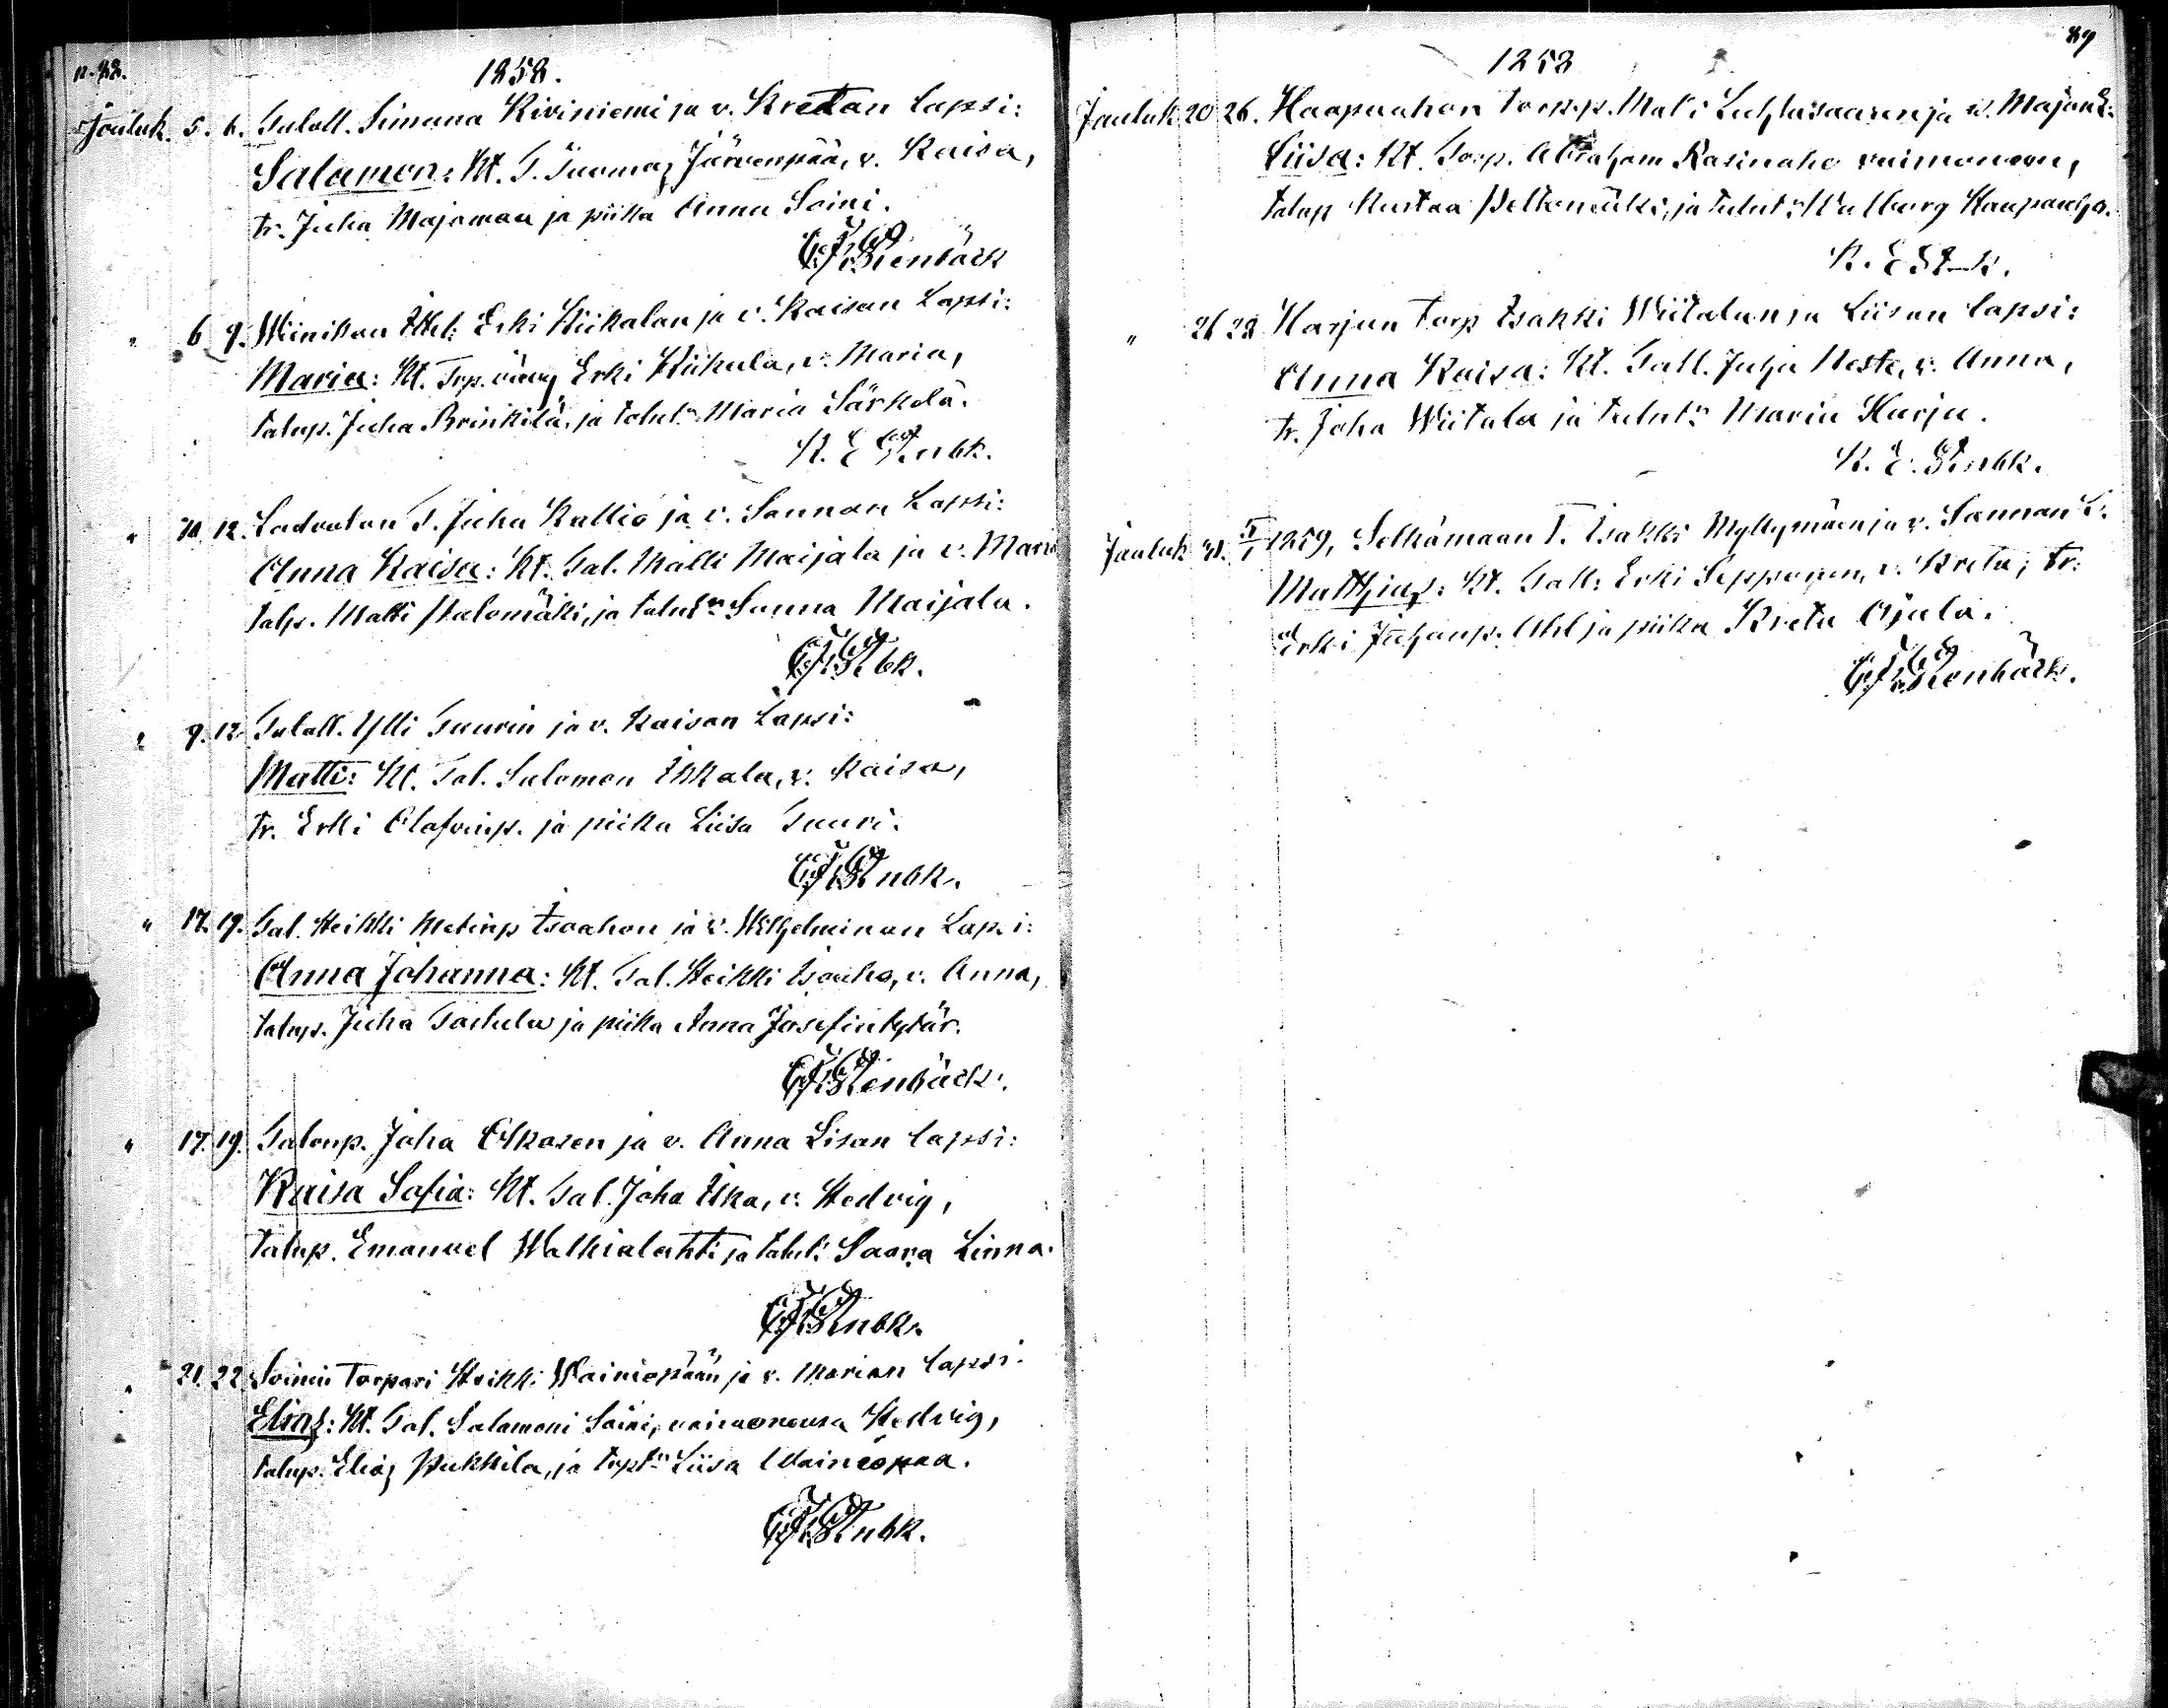 1858.
Jouluk. 5. 6. Talall. Simuna Riviniemi ja v. Kretan lapsi:
Salamon: Kt. T. Tuomas Järvenpää, v. Kaisa,
tr. Juha Majaman ja piika Anna Soini.
Stenbäck
" 6 9. Erki Kiikalan ja v. Kaisan Lapsi:
Maria: Kt. Trp. Erki Kiikala, v. Maria,
talup. Juha Brinkilä, ja talut:r Maria Särkelä.
K. E Stenbk.
" 10 12. Ladvalan T. Juha Kallio ja v. Sannan Lapsi:
Anna Kaisa: Kt. Tal. Matti Maijala ja v. Maria
talp. Matti Salomäki, ja talut:r Sanna Maijala.
Stbk.
" 9. 12 Talall. Ylli Tuurin ja v. Kaisan Lapsi:
Matti: Kt. Tal. Salomon Ikkala, v. Kaisa,
tr. Erkki Olafsinp. ja piika Liisa Tuuri.
Stnbk.
" 17. 19. Tal. Heikki Matinp Isoahon ja v. Wilhelminan Lapsi:
Anna Johanna: Kt. Tal. Heikki Isoaho, v. Anna,
talup. Juha Tastula ja piika Anna Josefintytär.
Stenbäck.
" 17. 19. Talonp. Joha Olkosen ja v. Anna Lisan lapsi:
Kaisa Sofia: Kt. Tal. Joha Ilka, v. Hedvig,
talup. Emanuel Walkialahti ja talut: Saara Linna.
Stnbk.
" 21. 22. Soinin Torpari Heikki Wainiopään ja v. Marian lapsi:
Elias: Kt. Tal. Salamoni Soini, vaimonensa Hedvig,
talup. Elias Pukkila, ja trpt:r Liisa Wainiopaa.
Stnbk.
89
1858
Jouluk 20 26. Haapuahon torpp. Mati Luhtasaaren ja v. Majan L:
Liisa: Kt. Torp. Abraham Rasinaho vaimoneen,
talup Kustaa Peltomäki, ja talut:r Walborg Haapaaho.
K. E St--k.
" 26 28 Harjun torp Isakki Wiitalan ja Liisan lapsi:
Anna Kaisa: Kt. Tall. Juha Neste, v. Anna,
tr. Joha Wiitala ja talut:r Maria Harju.
K. E. Stnbk.
Jouluk 31. 1859, Selkämaan T. Isakki Myllymäen ja v. Sannan L:
Matthias: Kt. Tall: Erki Sepponen, v. Kreta; tr:
Erki Juhanp. Uhl ja piika Kreta Ojala.
Stenbäck.